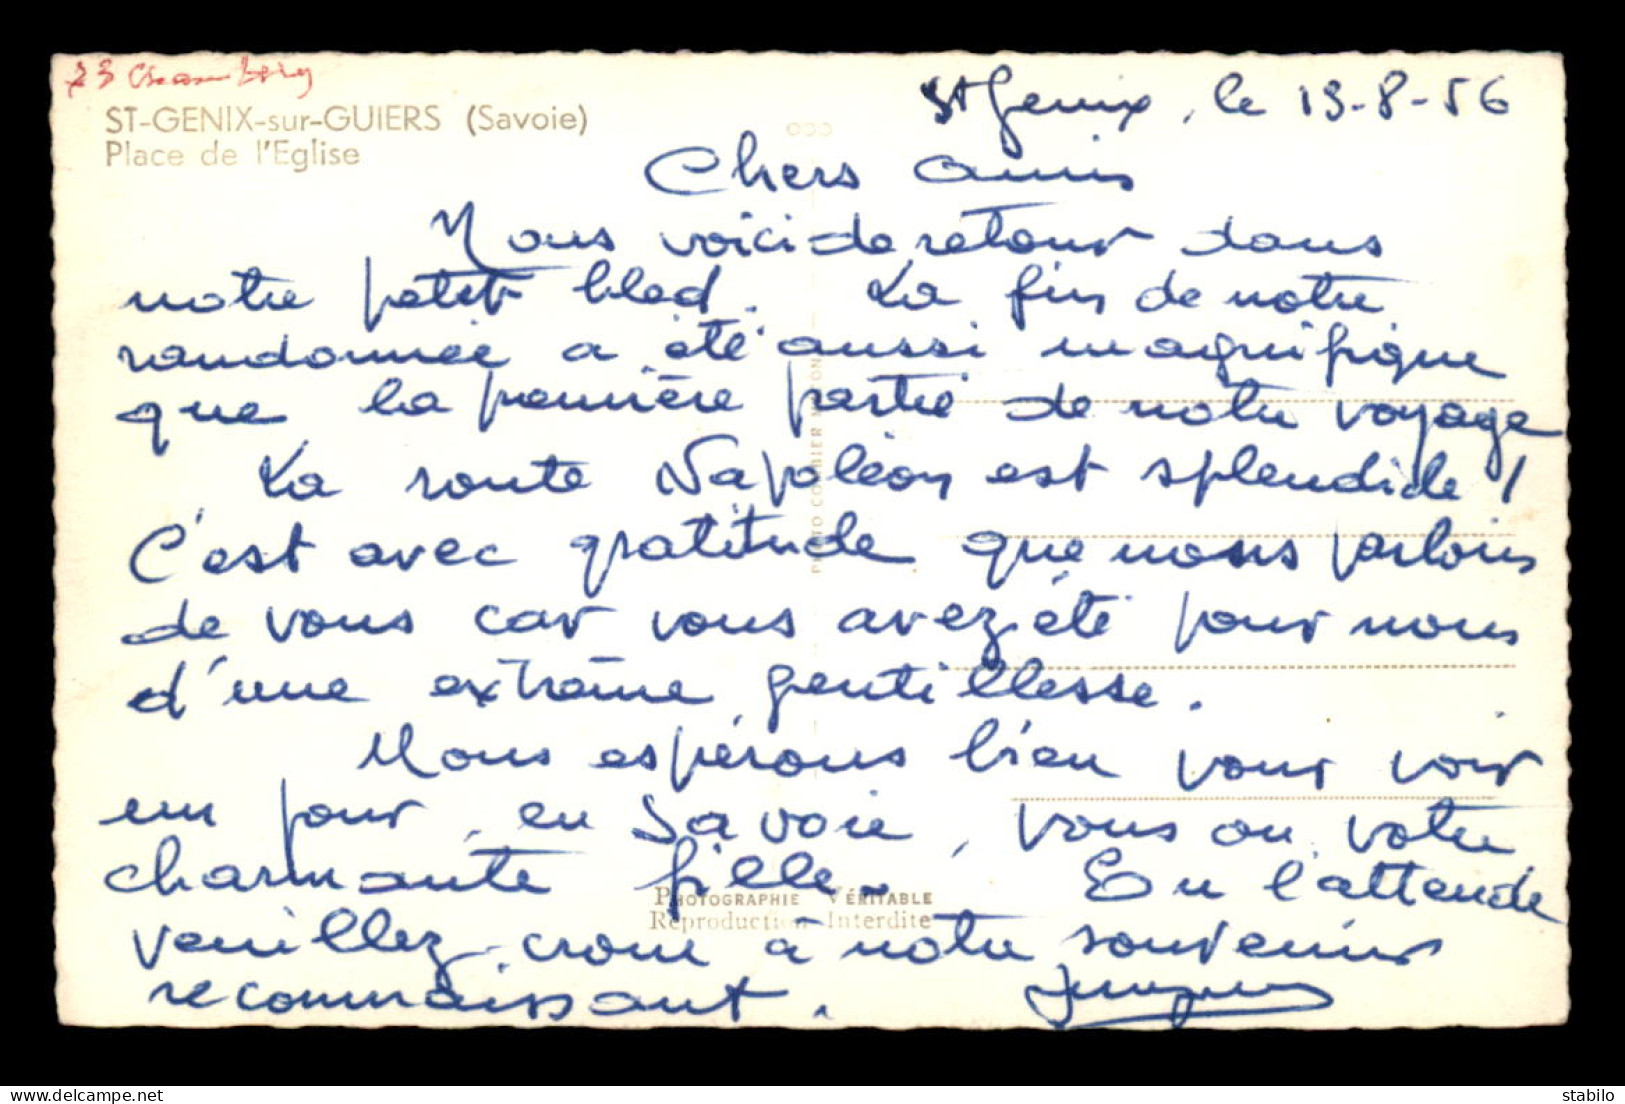 73 Chambéry
ST-GENIX-sur-GUIERS (Savoie)
Place de l'Eglise
St Genix, le 13-8-56
Chers amis
Nous voici de retour dans
notre petit bled. La fin de notre
randonnée a été aussi magnifique
que la première partie de notre voyage
La route Napoléon est splendide !
C'est avec gratitude que nous parlons
de vous car vous avez été pour nous
d'une extrême gentillesse.
Nous espérons bien vous voir
un jour, en Savoie, vous ou votre
charmante fille. En l'attende
veuillez croire à notre souvenir
reconnaissant.
PHOTO COMBIER
PHOTOGRAPHIE VÉRITABLE
Reproduction Interdite
stabilo